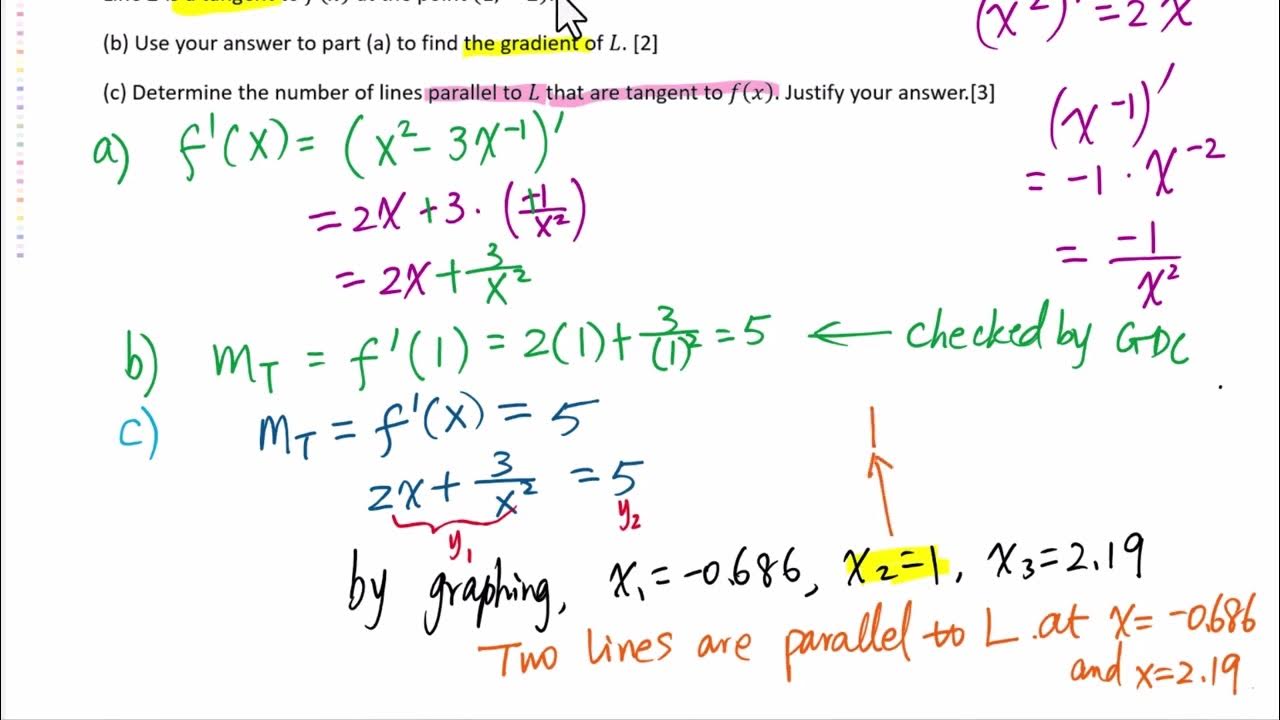 Line L is a tangent to f(x) at the point (1, −2).
(x²)' = 2x
(b) Use your answer to part (a) to find the gradient of L. [2]
(c) Determine the number of lines parallel to L that are tangent to f(x). Justify your answer.[3]
a) f'(x) = (x² - 3x⁻¹)'
= 2x + 3 · (+1/x²)
= 2x + 3/x²
(x⁻¹)'
= -1 · x⁻²
= -1/x²
b) m_T = f'(1) = 2(1) + 3/(1)² = 5 ← checked by GDC
c) m_T = f'(x) = 5
2x + 3/x² = 5
y₁ y₂
1
by graphing, x₁ = -0.686, x₂ = 1, x₃ = 2.19
Two lines are parallel to L at x = -0.686
and x = 2.19